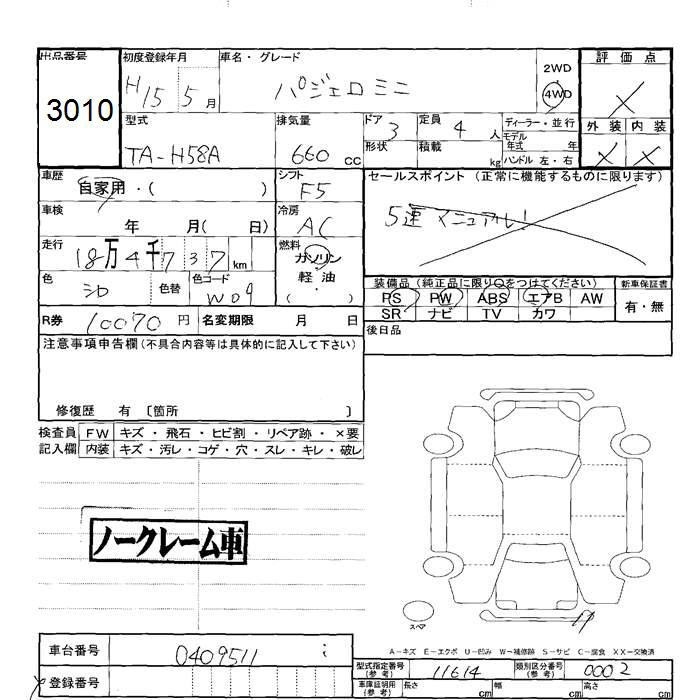 出品番号 初度登録年月 車名・グレード 評価点
3010 H15 5月 パジェロミニ 2WD 4WD X
型式 排気量 ドア 3 定員 4 人 ディーラー・並行 外装 内装
TA-H58A 660 cc 形状 積載 kg モデル年式 年 ハンドル 左・右 X X
車歴 自家用・( ) シフト F5 セールスポイント (正常に機能するものに限ります)
車検 年 月( 日) 冷房 AC 5速マニュアル!
走行 18万4千737km 燃料 ガソリン 軽・油 ( )
色 シロ 色替 色コード W09 装備品 (純正品に限り○をつけてください) 新車保証書
PS PW ABS エアB AW 有・無
R券 10070円 名変期限 月 日 SR ナビ TV カワ
注意事項申告欄 (不具合内容等は具体的に記入して下さい) 後日品
修復歴 有 〔箇所 〕
検査員 FW キズ・飛石・ヒビ割・リペア跡・×要
記入欄 内装 キズ・汚レ・コゲ・穴・スレ・キレ・破レ
ノークレーム車
スペア
A-キズ E-エクボ U-凹み W-補修跡 S-サビ C-腐食 XX-交換済
車台番号 0409511 i 型式指定番号 (参考) 11614 類別区分番号 (参考) 0002
登録番号 車庫証明用 (参考) 長さ cm 幅 cm 高さ cm